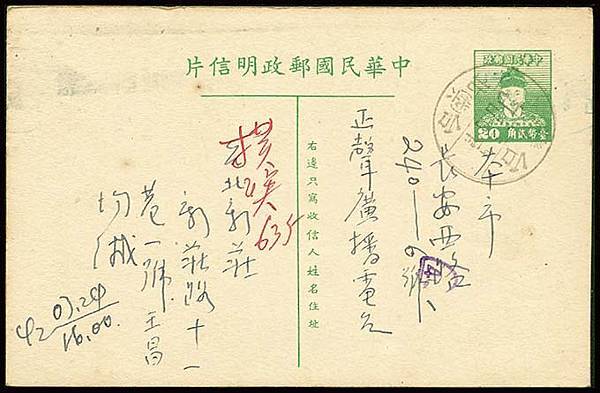 中華民國郵政明信片
中華民國郵政
20
臺幣貳角
本市
長安西路
240—6號
正聲廣播電台
右邊只寫收信人姓名住址
635
台北新莊
新莊路十一
巷一號 王昌
均緘
42 03.24
16.00